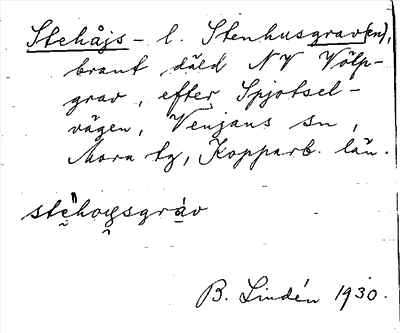 Stehåjs- l. Stenhusgrav(en),
brant däld NV Völp-
grav, efter Spjotsel-
vägen, Venjans sn,
Mora tg, Kopparb. län.
stèhoysgráv
B. Lindén 1930.